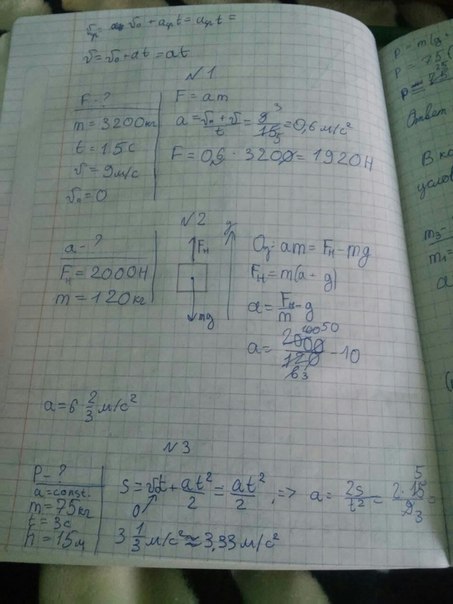 υ = υ₀ + at = at
N1
F - ?
m = 3200кг
t = 15с
υ = 9м/с
υ₀ = 0
F = am
a = (υ₀ + υ)/t = 9/15 = 0,6 м/с²
F = 0,6 · 3200 = 1920Н
N2
a - ?
Fн = 2000Н
m = 120кг
Fн
mg
y
Oy: am = Fн - mg
Fн = m(a - g)
a = Fн/m - g
a = 2000/120 - 10
a = 6 2/3 м/с²
N3
P - ?
a = const.
m = 75кг
t = 3с
h = 15м
S = υ₀t + at²/2 = at²/2, => a = 2s/t² = 2·15/9 =
0
3 1/3 м/с² ≈ 3,33 м/с²
P = m(g
Ответ
В к
услов
m₁ =
a